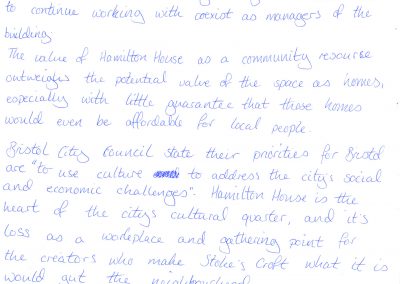 to continue working with coexist as managers of the
building.
The value of Hamilton House as a community resource
outweighs the potential value of the space as homes,
especially with little guarantee that those homes
would even be affordable for local people.
Bristol City Council state their priorities for Bristol
are "to use culture to address the city's social
and economic challenges". Hamilton House is the
heart of the city's cultural quarter, and it's
loss as a workplace and gathering point for
the creators who make Stoke's Croft what it is
would gut the neighbourhood